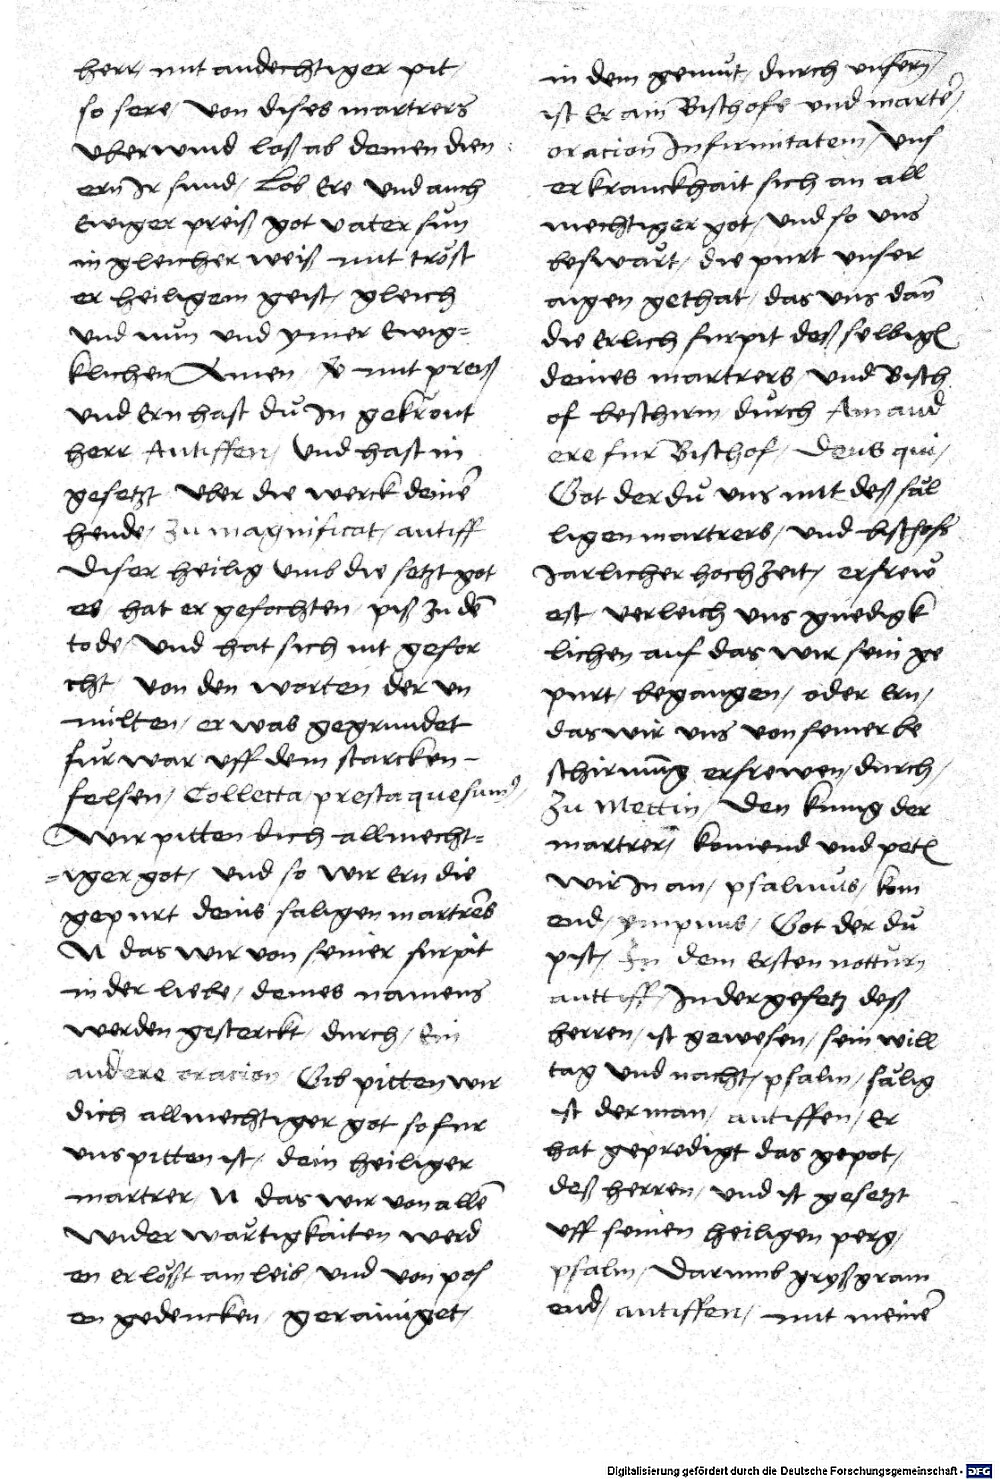 herr, mit andechtiger pit,
so sere, von dises martrers
vberwind loß ab deinen dien
ern Ir sund, Lob Ere vnd auch
Ewiger preiß got vater sůn
in gleicher weiß mit tröst
er heiligem geist, gleich
vnd nůn vnd ymer Ewig=
klichen Amen, V mit preiß
vnd Ern hast dů In gekrönt
herr Antiffen, Vnd hast in
gesetzt vber die werck deinē
hende, zu magnificat, antiff
Diser heilig vmb die setzt got
es hat er gefochten, piß zu dē
tode, vnd hat sich nit gefor
cht, von den worten der vn
milten, er was gegrundet
fůr war vff dem starcken -
felsen, Collecta, presta quesumꝰ,
Wir pitten dich allmecht=
=iger got, vnd so wir Ern die
gepurt deins saligen martrēs
N das wir von seiner furpit
in der liebe, deines namens
werden gesterckt, durch, Ein
andere oracion, Gib pitten wir
dich allmechtiger got so fur
vns pitten ist, dein heiliger
martrer, N das wir von allē
widerwärtigkaiten werd
en erlößt am leib, vnd von pos
en gedencken, gerainiget,
in dem gemůt, durch vnsern,
ist Er ain Bischofe vnd martē,
oracion Infirmitatem, Vns
er kranckhait sich an all
mechtiger got, vnd so vns
beswärt, die purt vnser
aigen gethat, das vns dan̄
die Erlich furpit deß selbigē
deines martrers, vnd Bisch
of beschirm důrch Ain and
ere fur Bischof, Deus qui,
Got der dů vns mit deß säl
ligen martrers, vnd bischofs
Jarlicher hochzeit, erfrew
est, verleich vns gnedigk
lichen auf das wir sein ge
purt, begangen, oder Ern,
das wir vns von seiner be
schirmūg erfrewen, durch,
Zu Mettin, Den kunig der
martrer, komend vnd petē
wir In an, psalmus, kom
end, ympnus, Got der dů
pist, In dem Ersten notturn
anttiff, In der gesetz deß
herren, ist gewesen, sein will
tag vnd nacht, psalm, sälig
ist der man, antiffen, Er
hat gepredigt das gepot,
deß herren, vnd ist gesetzt
vff seinen heiligen perg,
psalm, Darumb gryßgram
end, antiffen, mit meinē
Digitalisierung gefördert durch die Deutsche Forschungsgemeinschaft - DFG